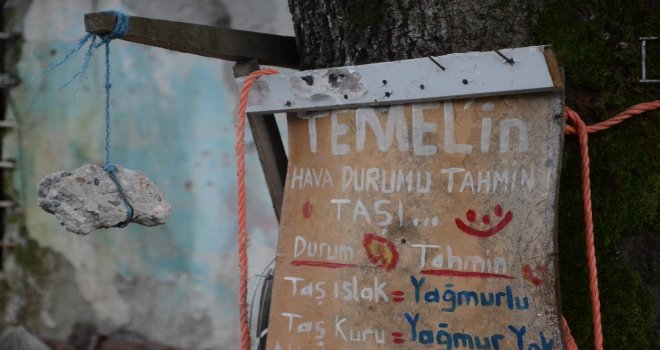 TEMEL'in
HAVA DURUMU TAHMİN
TAŞI...
Durum Tahmin
Taş ıslak = Yağmurlu
Taş Kuru = Yağmur Yok